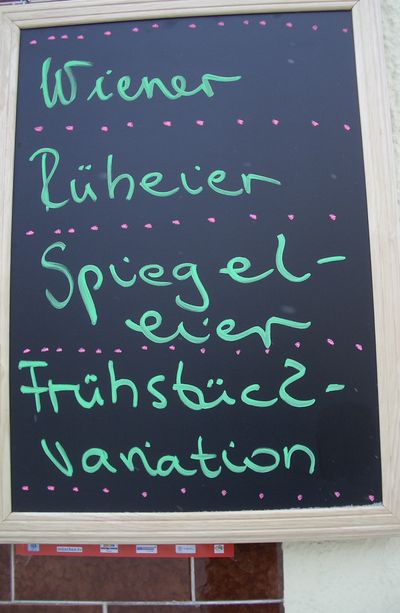 Wiener
Rüheier
Spiegel-
eier
Frühstück-
variation
münchen.tv